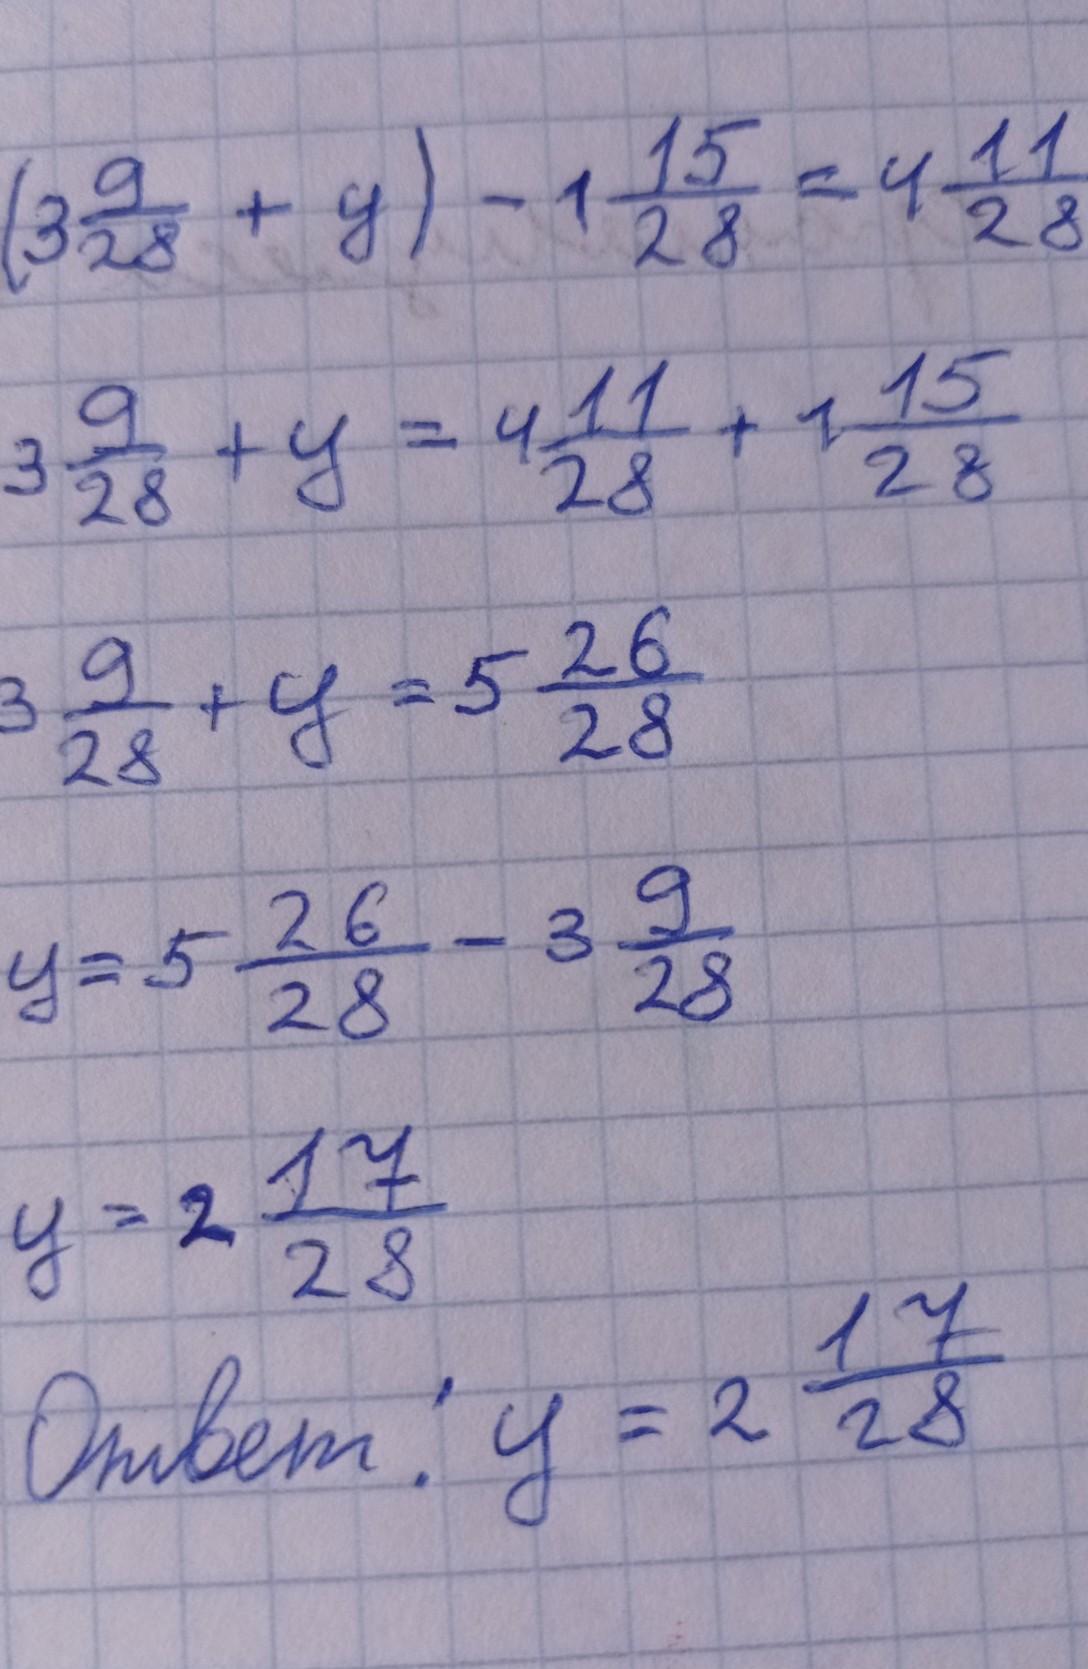 (3 9/28 + y) - 1 15/28 = 4 11/28
3 9/28 + y = 4 11/28 + 1 15/28
3 9/28 + y = 5 26/28
y = 5 26/28 - 3 9/28
y = 2 17/28
Ответ: y = 2 17/28